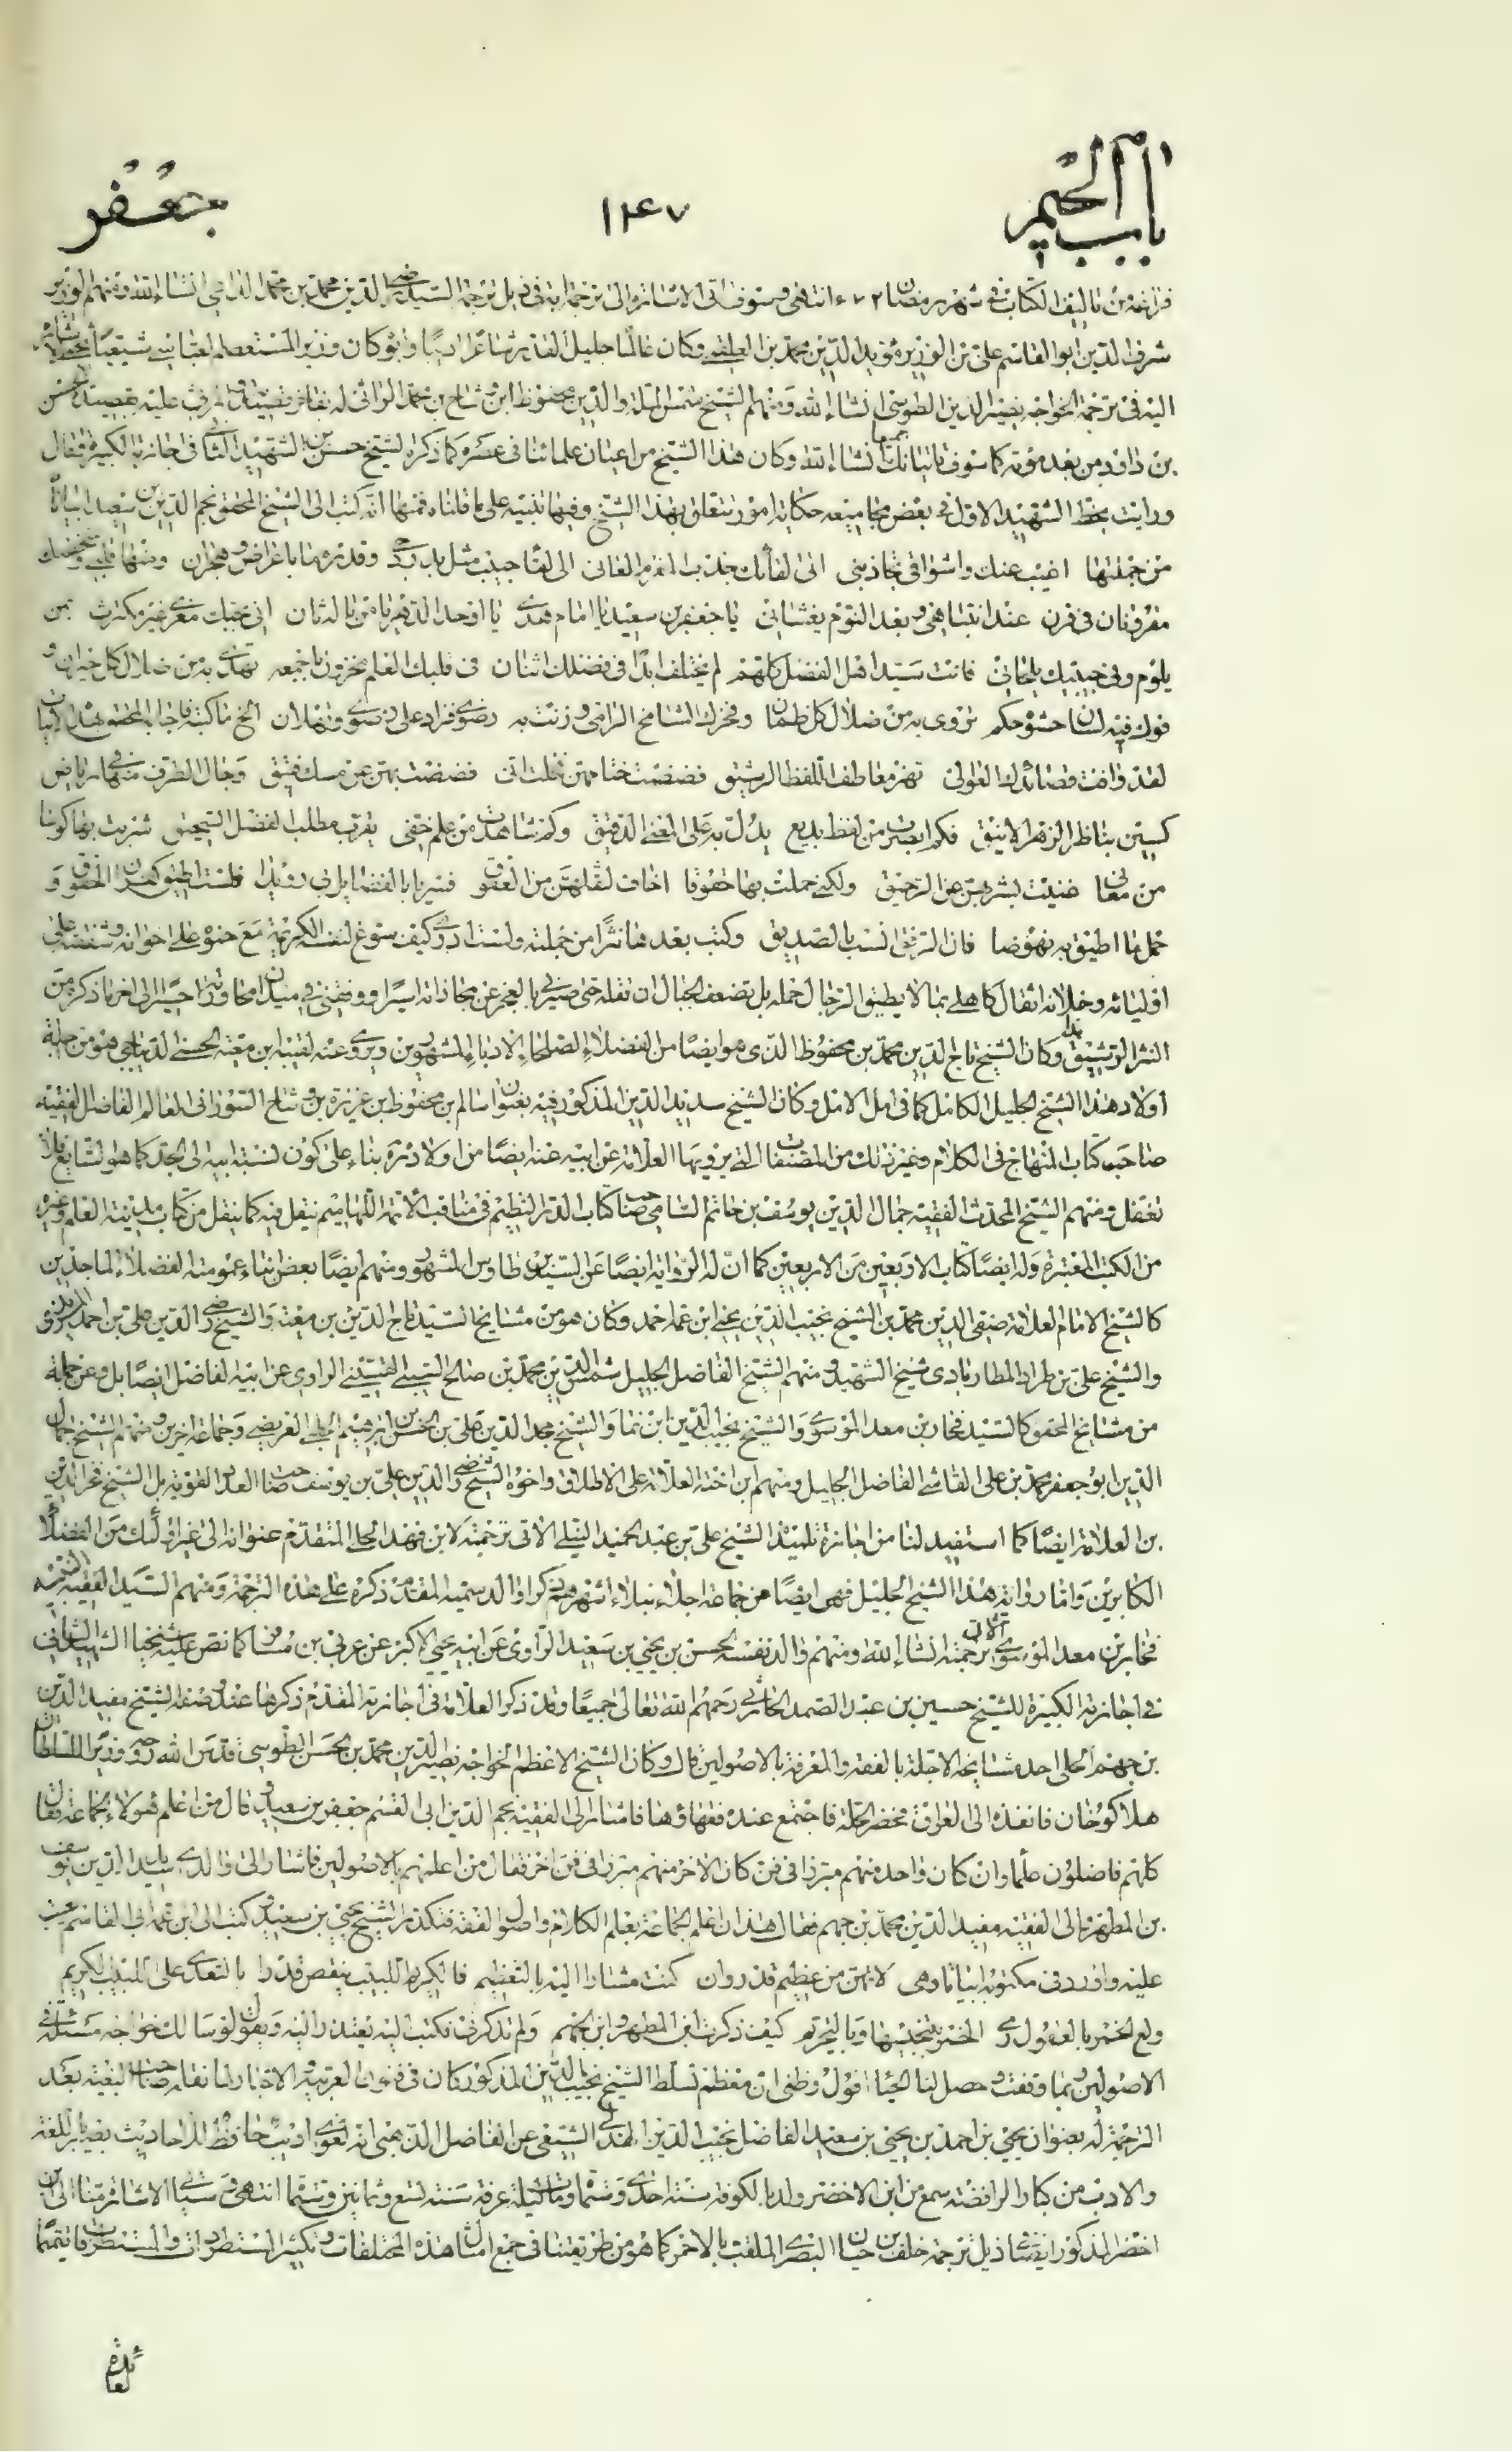 باب الجيم ١٤٧ جعفر
فراغه من تاليف الكتاب في شهر رمضان ٦٧٢ انتهى وسوف تاتي الاشارة الى ترجمة ابه في ذيل ترجمة السيد رضي الدين محمد بن محمد الاوي انشاء الله ومنهم الوزير
شرف الدين ابو القاسم علي بن الوزير مؤيد الدين محمد بن العلقمي وكان عالما جليل القدر شاعرا اديبا وابوه كان وزير المستعصم العباسي شيعيا
اليه في ترجمة الخواجه نصير الدين الطوسي انشاء الله ومنهم الشيخ شمس الملة والدين محفوظ ابن وشاح بن محمد الراثي له بفاخر قصيدته المرثي عليه بقصيدة الحسن
بن داود من بعد موته كما سوف ياتيانك انشاء الله وكان هذا الشيخ من اعيان علمائنا في عصره كما ذكره الشيخ حسن بن الشهيد الثاني في اجازته الكبيرة فقال
ورايت بخط الشهيد الاول في بعض مجاميعه حكاية امور تتعلق بهذا الشيخ وفيها تنبيه على ما قلناه فمنها انه كتب الى الشيخ المحقق نجم الدين بن سعيد ابياتا
من جملتها اغيب عنك واشواقي تجاذبني الى لقائك جذب المغرم العاني الى لقا حبيب مثل بدر دجى وقد رماه باعراض وهجران ومنها قلبي وشخصك
مقرونان في قرن عند انتباهي وبعد النوم يغشاني يا جعفر بن سعيد يا امام هدى يا اوحد الدهر يا من ما له ثان اني بحبك مغرى غير مكترث بمن
يلوم وفي حبيك يلحاني فانت سيد اهل الفضل كلهم لم يختلف ابدا في فضلك اثنان في قلبك العلم مخزون باجمعه تهدي به من ضلال كل حيران و
فوك فيه لسان حشوه حكم تروي به من ضلال كل ظمان وفخرك الشامخ الراسي وزنت به رضوى فزاد على رضوى وثهلان الخ ما كتبه فاجابه المحقق بهذه الابيات
لقد وافت قصائدك العوالي تهز معاطف اللفظ الرشيق فضضت ختامهن فخلت اني فضضت بهن عن مسك فتيق وجال الطرف منها في رياض
كسين بناظر الزهر الانيق فكم ابصرت من لفظ بديع يدل به على المعنى الدقيق وكم شاهدت من علم خفي يقرب مطلب الفضل السحيق شربت بها كؤسا
من معاني غنيت بشربهن عن الرحيق ولكني حملت بها حقوقا اخاف لثقلهن من العقوق فسر يا بالفضائل بي رويدا فلست اطيق كفران الحقوق و
حمل ما اطيق به نهوضا فان الرفق انسب بالصديق وكتب بعدها نثرا من جملته ولست ادري كيف سوغ لنفسه الكريمة مع حنوه على اخوانه وشفقته على
اوليائه وخلانه اثقال كاهلي بما لا يطيق الرجال حمله بل تضعف الجبال ان تقله حتى صيرني بالعجز عن مجازاته اسيرا ووقفني في ميدان محاورته حسيرا الى اخر ما ذكره من
النثر الرشيق وكان الشيخ تاج الدين محمد بن محفوظ الذي هو ايضا من الفضلاء الصلحاء الادباء المشهورين ويروي عنه لفيفه ابن معية الحسني الديباجي هو من جملة
اولاد هذا الشيخ الجليل الكامل كما في امل الامل وكان الشيخ سديد الدين المذكور فيه بعنوان سالم بن محفوظ بن عزيزة بن وشاح السوراني العالم الفاضل الفقيه
صاحب كتاب المنهاج في الكلام وغير ذلك من المصنفات التي يرويها العلامة عن ابيه عنه ايضا من اولاد بناء على كون نسبة ابيه الى الجد كما هو الشايع فلا
تغفل ومنهم الشيخ المحدث الفقيه جمال الدين يوسف بن حاتم الشامي صاحب كتاب الدر النظيم في مناقب الائمة اللهاميم ينقل فيه كما ينقل من كتاب مدينة العلم وغيره
من الكتب المعتبرة وله ايضا كتاب الاربعين من الاربعين كما ان له الرواية ايضا عن السيد بن طاوس المشهور ومنهم ايضا بعض ابناء عمومته الفضلاء الماجدين
كالشيخ الامام العلامة صفي الدين محمد بن الشيخ نجيب الدين يحيى ابن عمه احمد وكان هو من مشايخ السيد تاج الدين بن معية والشيخ رضي الدين علي بن احمد المزيدي
والشيخ علي بن طراد المطاربادي شيخ الشهيد ومنهم الشيخ الفاضل الجليل شمس الدين محمد بن صالح السيبي القسيني الراوي عن ابيه الفاضل ايضا بل وعن جملة
من مشايخ المحقق كالسيد فخار بن معد الموسوي والشيخ نجيب الدين ابن نما والشيخ مجد الدين علي بن الحسن بن ابرهيم الحلي العريضي وجماعة اخرين ومنهم الشيخ جمال
الدين ابو جعفر محمد بن علي القاشي الفاضل الجليل ومنهم ابن اخته العلامة على الاطلاق واخوه الشيخ رضي الدين علي بن يوسف صاحب العدد القوية بل الشيخ فخر الدين
بن العلامة ايضا كما استفيد لنا من اجازة تلميذه الشيخ علي بن عبد الحميد النيلي الاتي ترجمته لابن فهد الحلي المتقدم عنوانه الى غير اولئك من الفضلاء
الكابرين واما رواية هذا الشيخ الجليل فهي ايضا عن جماعة اجلاء نبلاء اشهرهم ذكرا والد سميه المقدم ذكره على هذه الترجمة ومنهم السيد الفقيه النسابة
فخار بن معد الموسوي الآتي ترجمته انشاء الله ومنهم والد نفسه الحسن بن يحيى بن سعيد الراوي عن ابيه يحيى الاكبر عن عربي بن مسافر كما نص عليه شيخنا الشهيد الثاني
في اجازته الكبيرة للشيخ حسين بن عبد الصمد الحارثي رحمهم الله تعالى جميعا وقد ذكر العلامة في اجازته المقدم ذكرها عند وصفه الشيخ مفيد الدين
بن جهم الحلي احد مشايخه الاجلة بالفقه والمعرفة بالاصولين قال وكان الشيخ الاعظم الخواجه نصير الدين محمد بن الحسن الطوسي قدس الله روحه وزير السلطان
هلاكو خان فانفذه الى العراق فحضر الحلة فاجتمع عنده فقهاؤها فاشار الى الفقيه نجم الدين ابي القسم جعفر بن سعيد وقال من اعلم هؤلاء الجماعة فقال
كلهم فاضلون علما وان كان واحد منهم مبرزا في فن كان الاخر منهم مبرزا في فن اخر فقال من اعلمهم بالاصولين فاشار الى والدي سديد الدين يوسف
بن المطهر والى الفقيه مفيد الدين محمد بن جهم فقال هذان اعلم الجماعة بعلم الكلام واصول الفقه فتكدر الشيخ يحيى بن سعيد وكتب الى ابن عمه ابي القاسم يعتب
عليه واورد في مكتوبه ابياتا وهي لا تهن من عظيم قدر وان كنت مشارا اليه بالتعظيم فاللبيب الكريم ينقص قدرا بالتعدي على اللبيب الكريم
ولع الخمر بالعقول رمى الخمر بتنجيسها وبالتحريم كيف ذكرت ابن المطهر وابن الجهم ولم تذكرني فكتب اليه يعتذر اليه ويقول لو سالك خواجه مسئلة في
الاصولين ربما وقفت وحصل لنا الحياء اقول وظني ان معظم تسلط الشيخ نجيب الدين المذكور كان في فنون العربية والاخبار لما نقله صاحب البغية بعد
الترجمة له بعنوان يحيى بن احمد بن يحيى بن سعيد الفاضل نجيب الدين الهذلي الشيعي عن الفاضل الذهبي انه لغوي اديب حافظ للاحاديث بصير باللغة
والادب من كبار الرافضة سمع من ابن الاخضر ولد بالكوفة سنة احدى وستمائة ومات ليلة عرفة سنة تسع وثمانين وستمائة انتهى وسياتي الاشارة منا الى ابن
اخضر المذكور ايضا في ذيل ترجمة خلف بن حيان البصري الملقب بالاحمر كما هو من طريقتنا في جمع امثال هذه المختلفات وتكثير المستطردات والمستطرفات تتميما
لعائدة